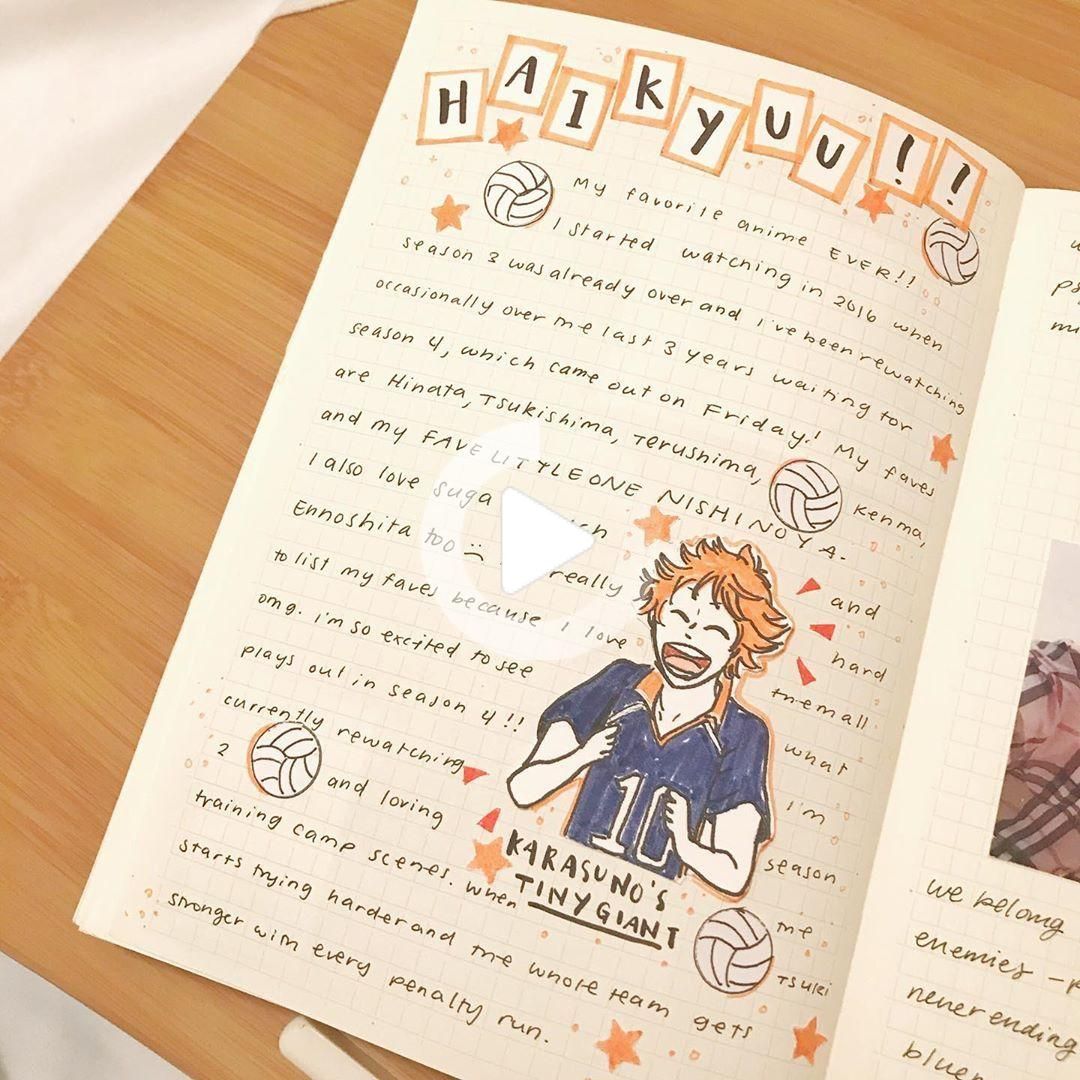 HAIKYUU!!
My favorite anime EVER!!
I started watching in 2016 when
season 3 was already over and i've been rewatching
occasionally over the last 3 years waiting for
season 4, which came out on Friday! My faves
are Hinata, Tsukishima, Terushima, Kenma,
and my FAVE LITTLE ONE NISHINOYA.
I also love suga and
Ennoshita too :( really hard
to list my faves because I love them all
omg. i'm so excited to see what
plays out in season 4!! I'm
currently rewatching season
2 and loving the
training camp scenes. when Tsuki
starts trying harder and the whole team gets
stronger with every penalty run.
KARASUNO'S
TINY GIANT
10
we belong
enemies
never ending